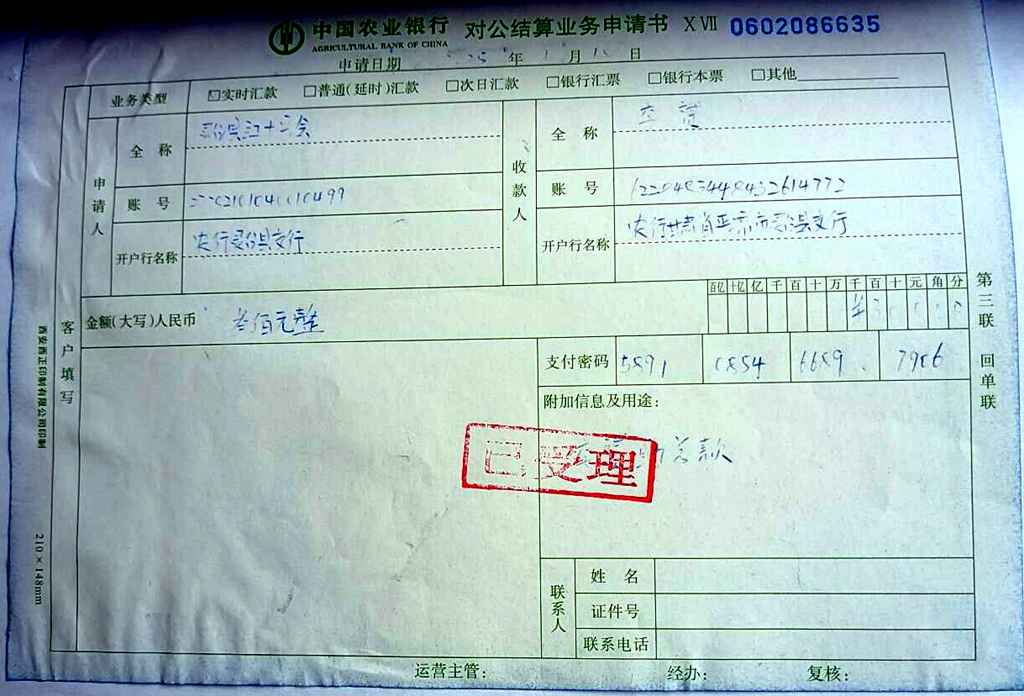 中国农业银行 对公结算业务申请书 XVII 0602086635
AGRICULTURAL BANK OF CHINA
申请日期 年 月 日
业务类型 ☑实时汇款 □普通(延时)汇款 □次日汇款 □银行汇票 □银行本票 □其他
申请人
全称 县红十字会
账号
开户行名称 农行灵台县支行
收款人
全称
账号
开户行名称 农行甘肃省平凉市灵台县支行
金额(大写)人民币 叁佰元整
百亿 十亿 亿 千 百 十 万 千 百 十 元 角 分
¥ 3 0 0 0 0
支付密码 5591 0854 6659 7906
附加信息及用途:
款
已受理
联系人
姓名
证件号
联系电话
运营主管: 经办: 复核:
客户填写
第三联 回单联
西安西正印制有限公司印制
210×148mm